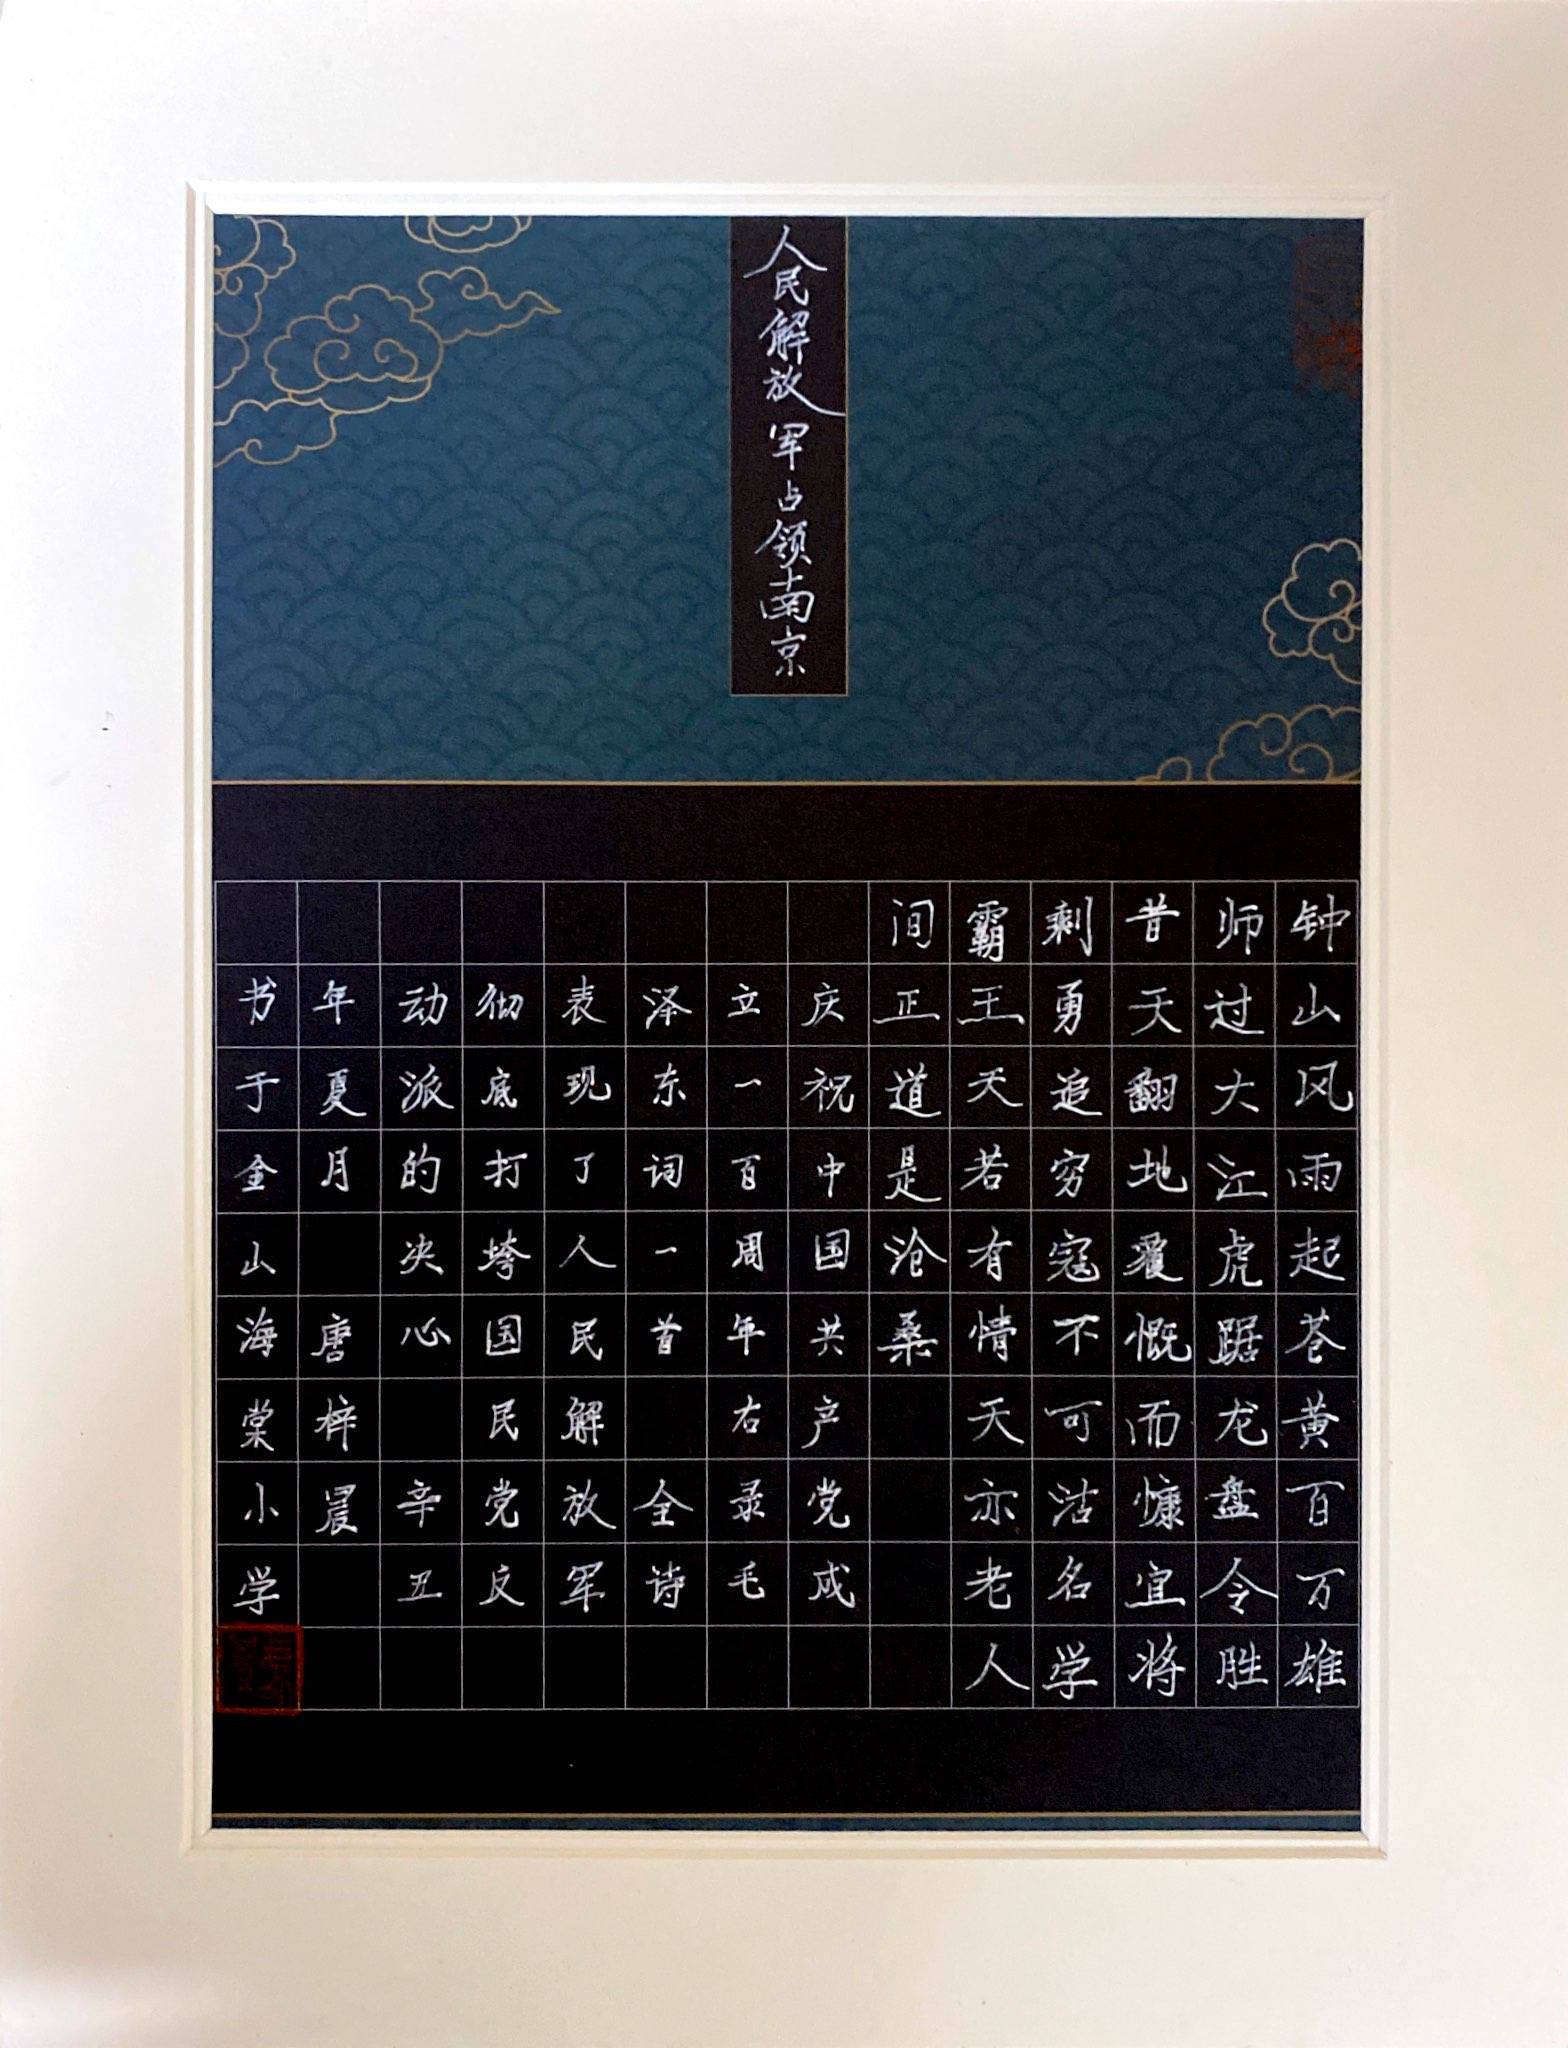 人民解放军占领南京
钟山风雨起苍黄百万雄
师过大江虎踞龙盘令胜
昔天翻地覆慨而慷宜将
剩勇追穷寇不可沽名学
霸王天若有情天亦老人
间正道是沧桑
庆祝中国共产党成
立一百周年右录毛
泽东词一首 全诗
表现了人民解放军
彻底打垮国民党反
动派的决心 辛丑
年夏月 唐梓晨
书于金山海棠小学